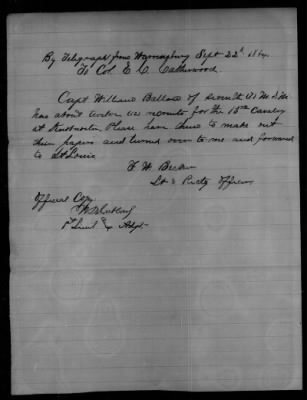 By Telegraph from Warrensburg Sept 22d 1864
To Col E. C. Catherwood.
Capt William Ballew of seventh M S M
has about twelve 12 recruits for the 13th Cavalry
at Please have him to make out
their papers and turned over to me and forward
to St Louis
F. W. Becker
Lt & Officer
Official Copy
1st Lieut & Adjt.